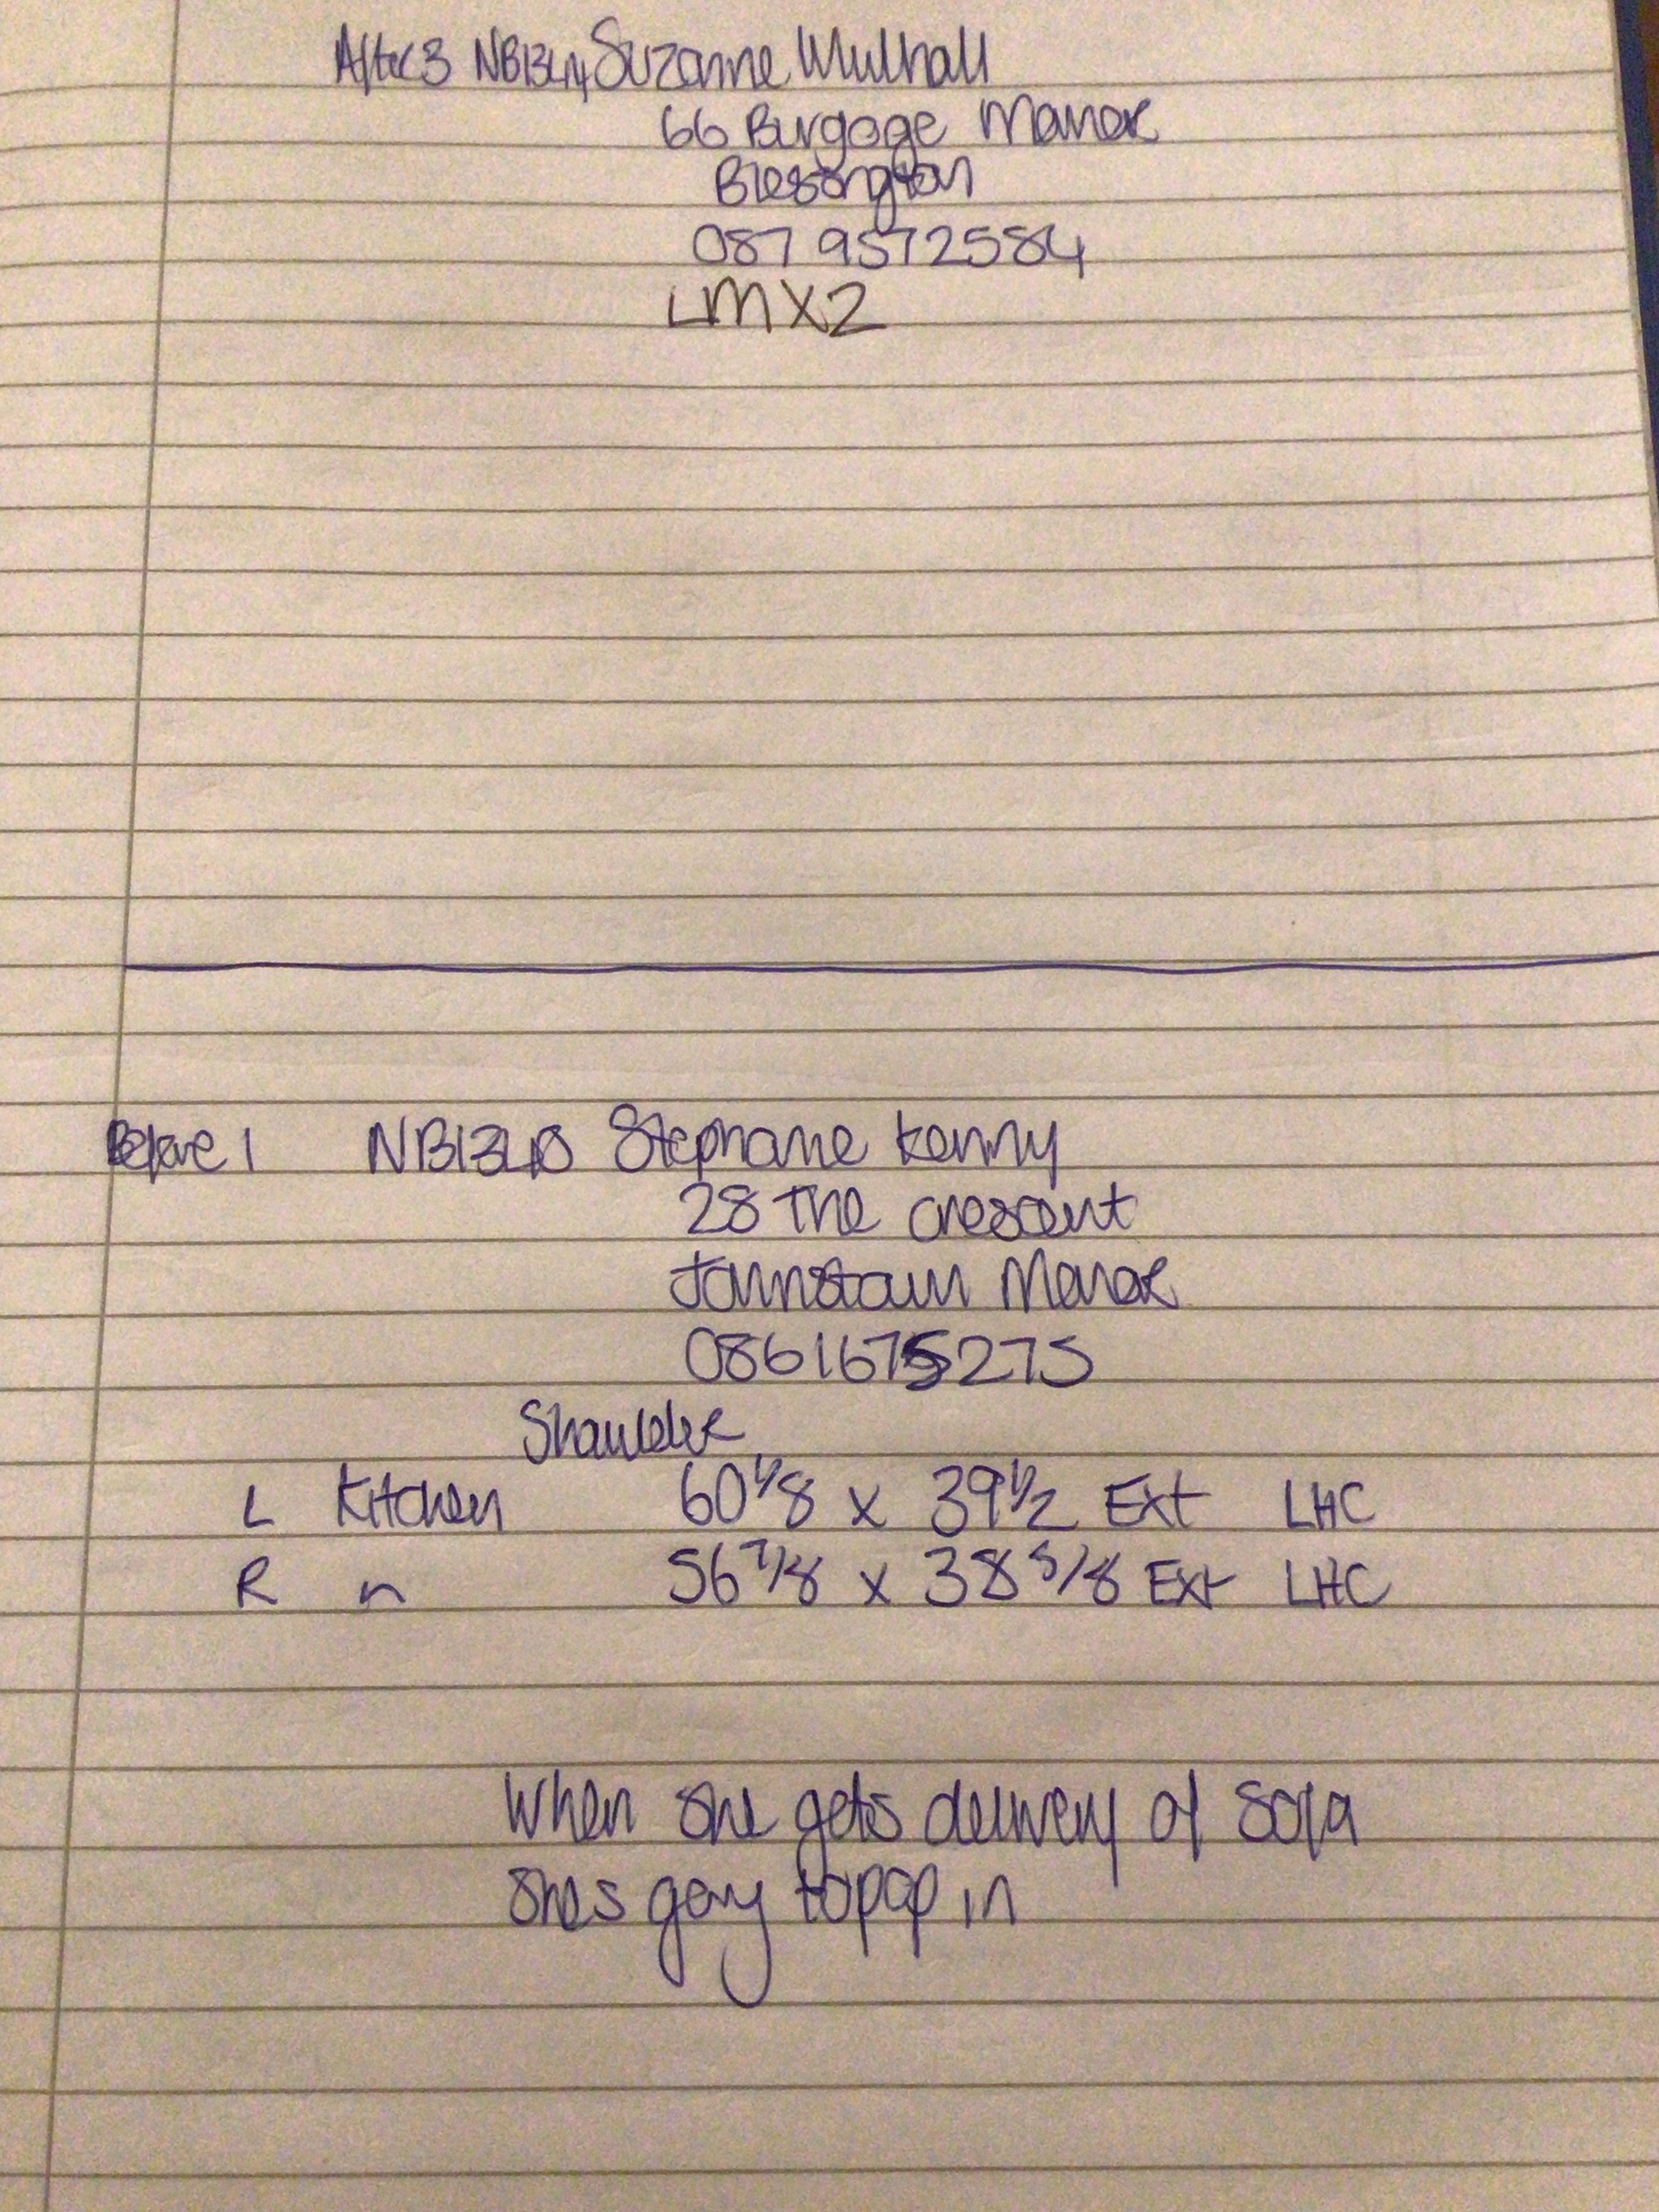 After 3 NB1344 Suzanne Mulhall
66 Burgage Manor
Blessington
087 9572584
LM X2
Before 1 NB1340 Stephanie Kenny
28 The Crescent
Johnstown Manor
0861675275
Shoulder
L Kitchen 60 1/8 x 39 1/2 Ext LHC
R " 56 7/8 x 38 5/8 Ext LHC
When she gets delivery of Sofa
she's going to pop in